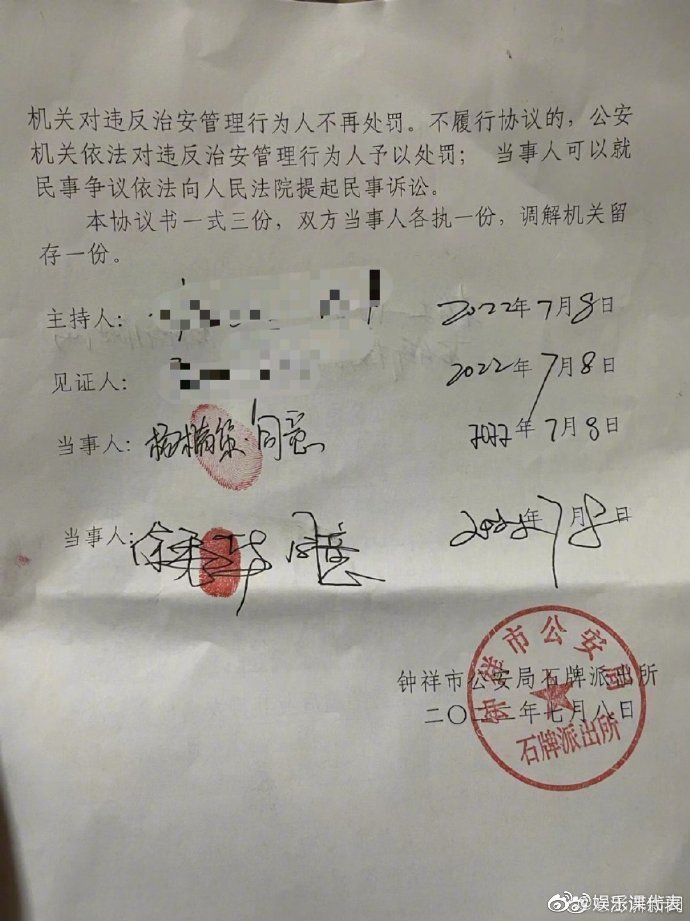 机关对违反治安管理行为人不再处罚。不履行协议的，公安
机关依法对违反治安管理行为人予以处罚； 当事人可以就
民事争议依法向人民法院提起民事诉讼。
本协议书一式三份，双方当事人各执一份，调解机关留
存一份。
主持人： 2022年7月8日
见证人： 2022年7月8日
当事人： 同意 2022年7月8日
当事人： 余秀华 同意 2022年7月8日
钟祥市公安局石牌派出所
二〇二二年七月八日
钟祥市公安局
石牌派出所
@娱乐课代表